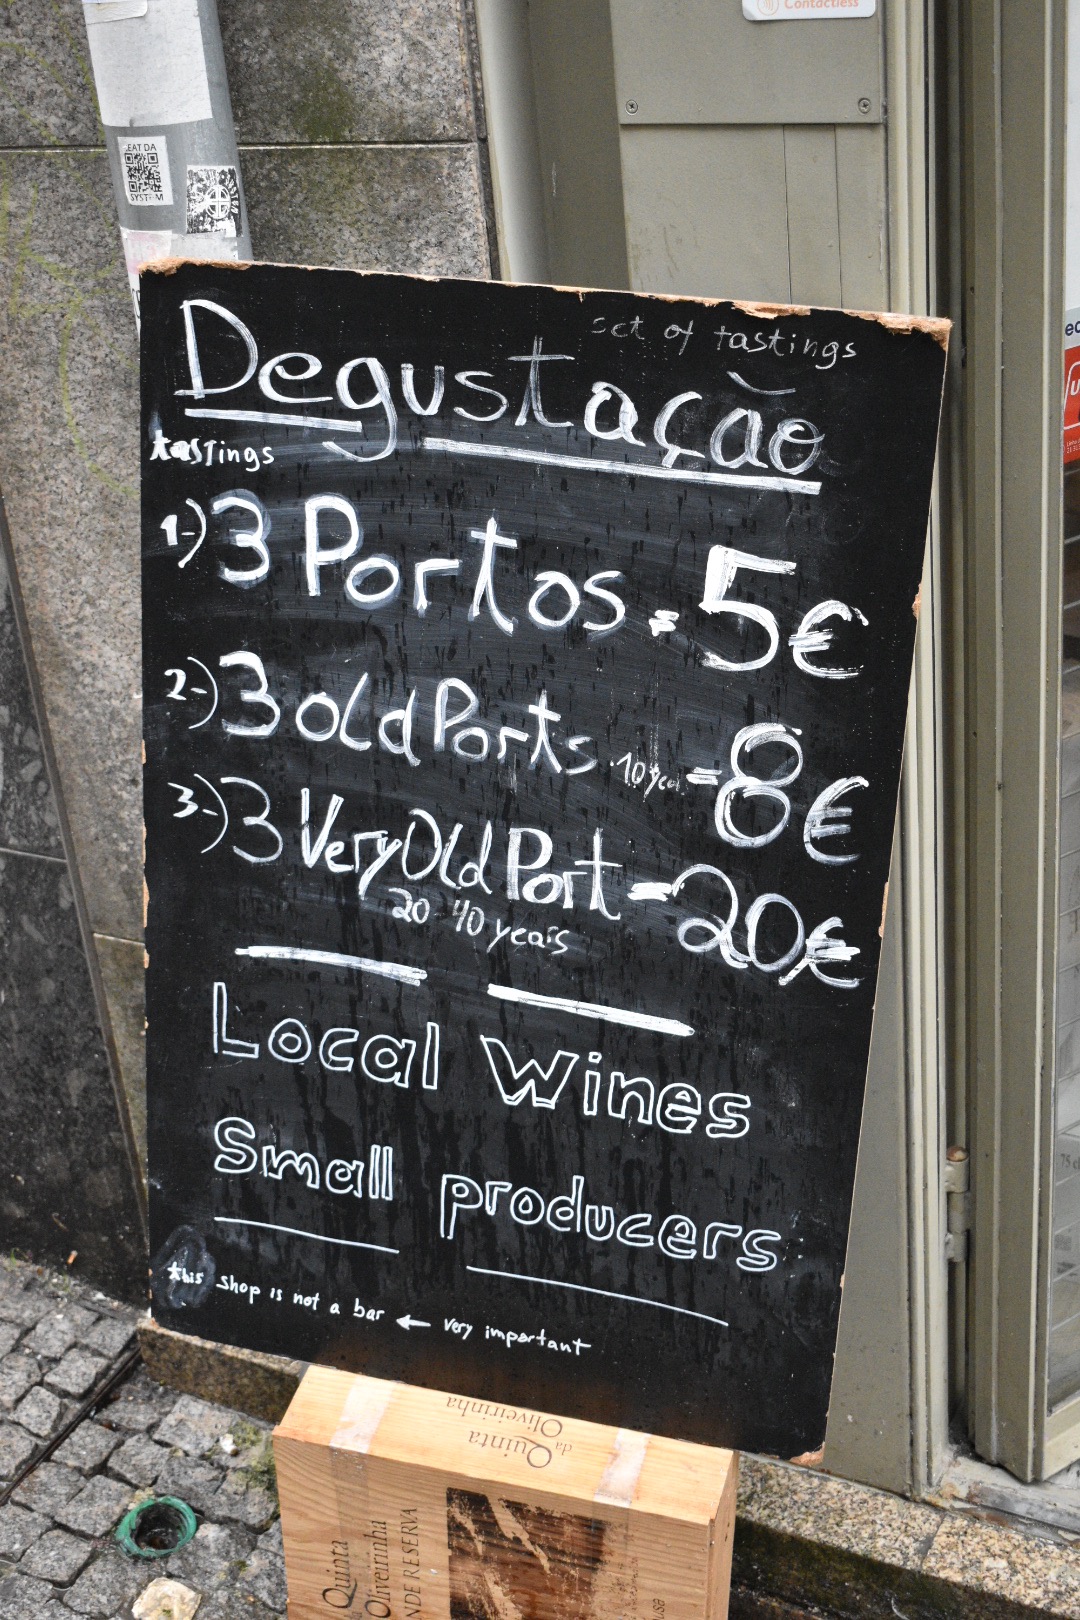 Contactless
EAT DA
SYSTEM
set of tastings
Degustação
tastings
1-) 3 Portos = 5€
2-) 3 old Ports .10 year. = 8€
3-) 3 Very Old Port - 20€
20-40 years
Local Wines
Small producers
this Shop is not a bar ← very important
Quinta
da
Oliveirinha
Quinta
Oliveirinha
NDE RESERVA
75 cl